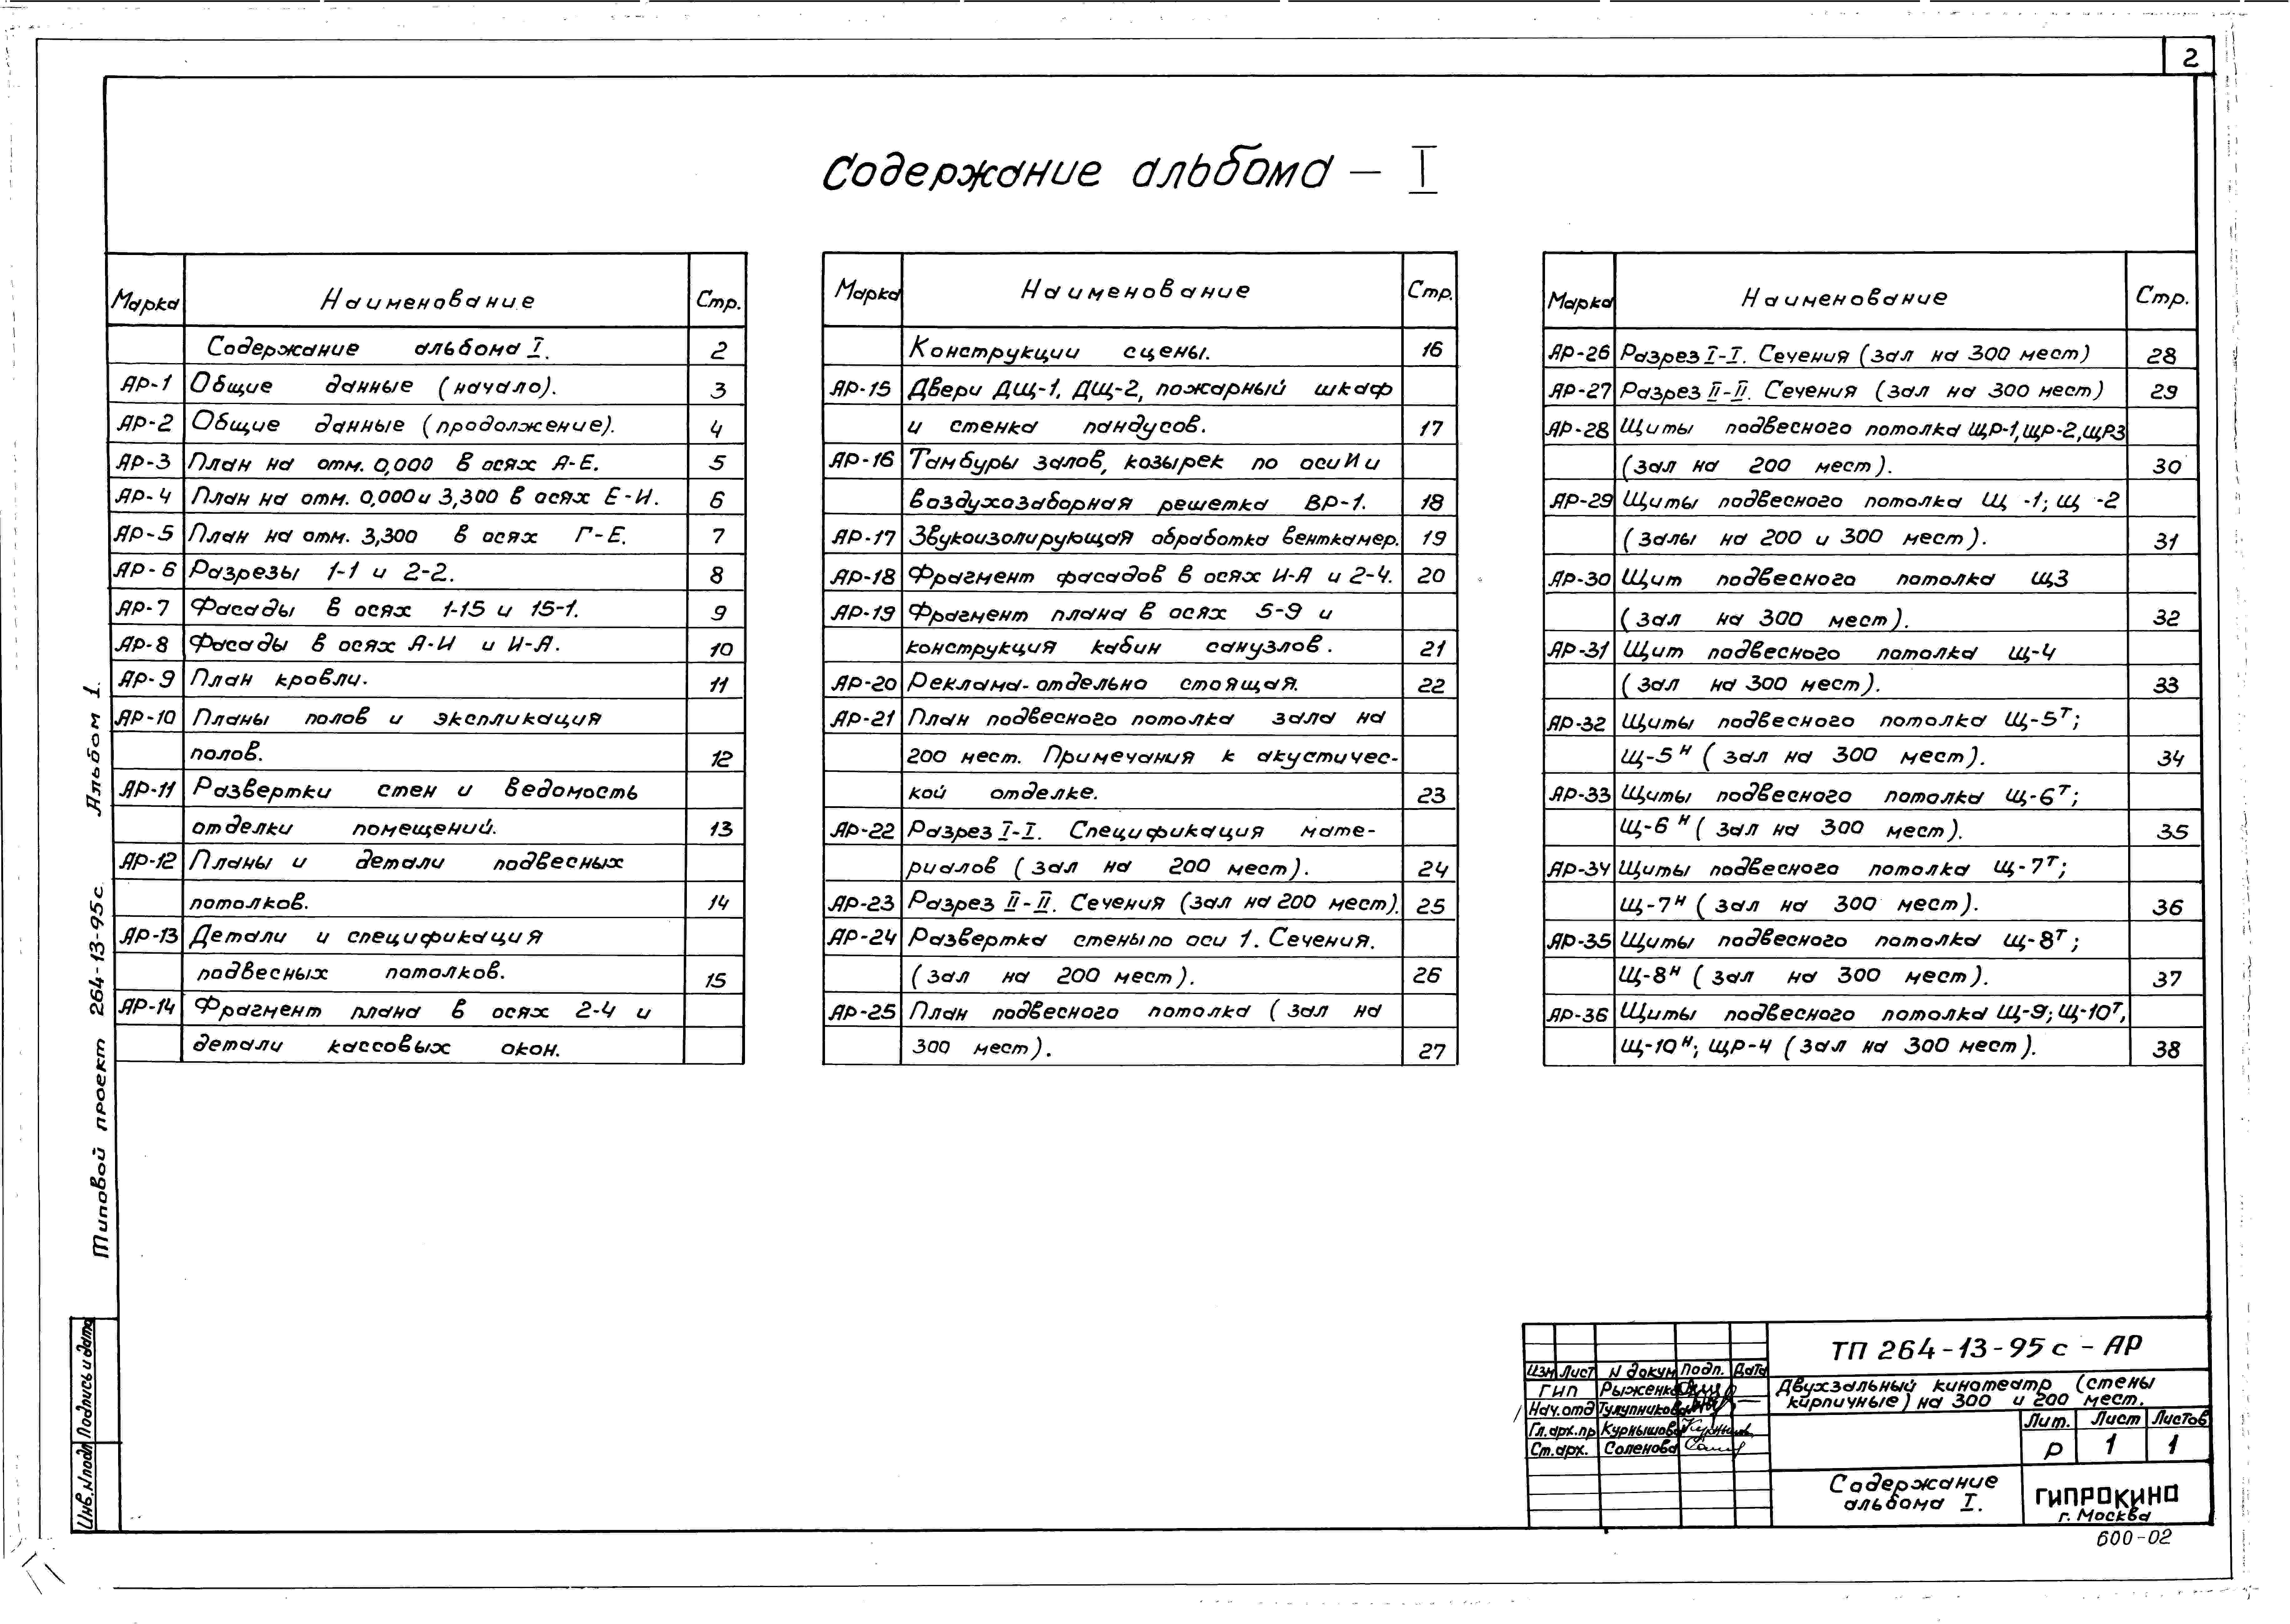 2
Содержание альбома – I
Марка Наименование Стр.
Содержание альбома I. 2
АР-1 Общие данные (начало). 3
АР-2 Общие данные (продолжение). 4
АР-3 План на отм. 0,000 в осях А-Е. 5
АР-4 План на отм. 0,000 и 3,300 в осях Е-И. 6
АР-5 План на отм. 3,300 в осях Г-Е. 7
АР-6 Разрезы 1-1 и 2-2. 8
АР-7 Фасады в осях 1-15 и 15-1. 9
АР-8 Фасады в осях А-И и И-А. 10
АР-9 План кровли. 11
АР-10 Планы полов и экспликация
полов. 12
АР-11 Развертки стен и ведомость
отделки помещений. 13
АР-12 Планы и детали подвесных
потолков. 14
АР-13 Детали и спецификация
подвесных потолков. 15
АР-14 Фрагмент плана в осях 2-4 и
детали кассовых окон.
Марка Наименование Стр.
Конструкции сцены. 16
АР-15 Двери ДЩ-1, ДЩ-2, пожарный шкаф
и стенка пандусов. 17
АР-16 Тамбуры залов, козырек по оси И и
воздухозаборная решетка ВР-1. 18
АР-17 Звукоизолирующая обработка венткамер. 19
АР-18 Фрагмент фасадов в осях И-А и 2-4. 20
АР-19 Фрагмент плана в осях 5-9 и
конструкция кабин санузлов. 21
АР-20 Реклама-отдельно стоящая. 22
АР-21 План подвесного потолка зала на
200 мест. Примечания к акустичес-
кой отделке. 23
АР-22 Разрез I-I. Спецификация мате-
риалов (зал на 200 мест). 24
АР-23 Разрез II-II. Сечения (зал на 200 мест). 25
АР-24 Развертка стены по оси 1. Сечения.
(зал на 200 мест). 26
АР-25 План подвесного потолка (зал на
300 мест). 27
Марка Наименование Стр.
АР-26 Разрез I-I. Сечения (зал на 300 мест) 28
АР-27 Разрез II-II. Сечения (зал на 300 мест) 29
АР-28 Щиты подвесного потолка ЩР-1, ЩР-2, ЩР3
(зал на 200 мест). 30
АР-29 Щиты подвесного потолка Щ -1; Щ -2
(залы на 200 и 300 мест). 31
АР-30 Щит подвесного потолка Щ3
(зал на 300 мест). 32
АР-31 Щит подвесного потолка Щ-4
(зал на 300 мест). 33
АР-32 Щиты подвесного потолка Щ-5ᵀ;
Щ-5ᴴ (зал на 300 мест). 34
АР-33 Щиты подвесного потолка Щ-6ᵀ;
Щ-6ᴴ (зал на 300 мест). 35
АР-34 Щиты подвесного потолка Щ-7ᵀ;
Щ-7ᴴ (зал на 300 мест). 36
АР-35 Щиты подвесного потолка Щ-8ᵀ;
Щ-8ᴴ (зал на 300 мест). 37
АР-36 Щиты подвесного потолка Щ-9; Щ-10ᵀ,
Щ-10ᴴ; ЩР-4 (зал на 300 мест). 38
Типовой проект 264-13-95с Альбом 1.
Инв.N подл Подпись и дата
Изм Лист N докум Подп. Дата
ГИП Рыженко
Нач.отд Тулупникова
Гл.арх.пр Курнышова
Ст.арх. Соленова
ТП 264-13-95с - АР
Двухзальный кинотеатр (стены
кирпичные) на 300 и 200 мест.
Лит. Лист Листов
Р 1 1
Содержание
альбома I.
ГИПРОКИНО
г. Москва
600-02